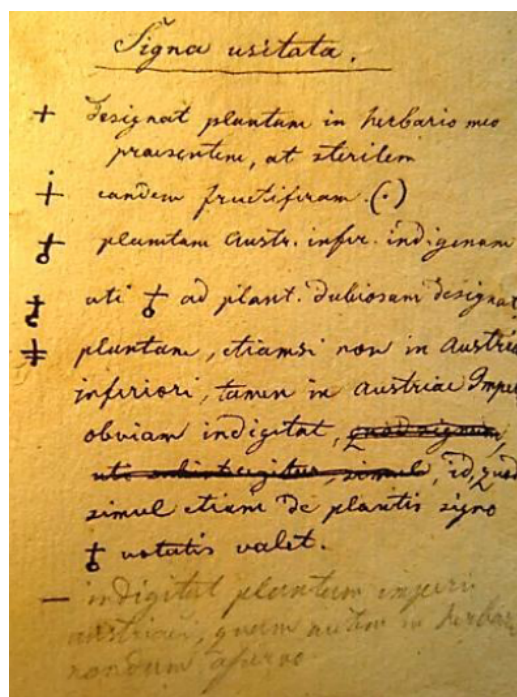 Signa usitata.
+ designat plantam in herbario meo
praesentem, at sterilem
∔ eandem fructiferam. (·)
♁ plantam Austr. infer. indigenam
uti ♁ ad plant. dubiosam designat
ǂ plantam, etiamsi non in Austria
inferiori, tamen in Austriae Imper
obviam indigitat, quod signum,
simul, id, quod
simul etiam de plantis signo
♁ notatis valet.
— indigitat plantam imperii
austriaci, quam autem in herbar
nondum asservo.